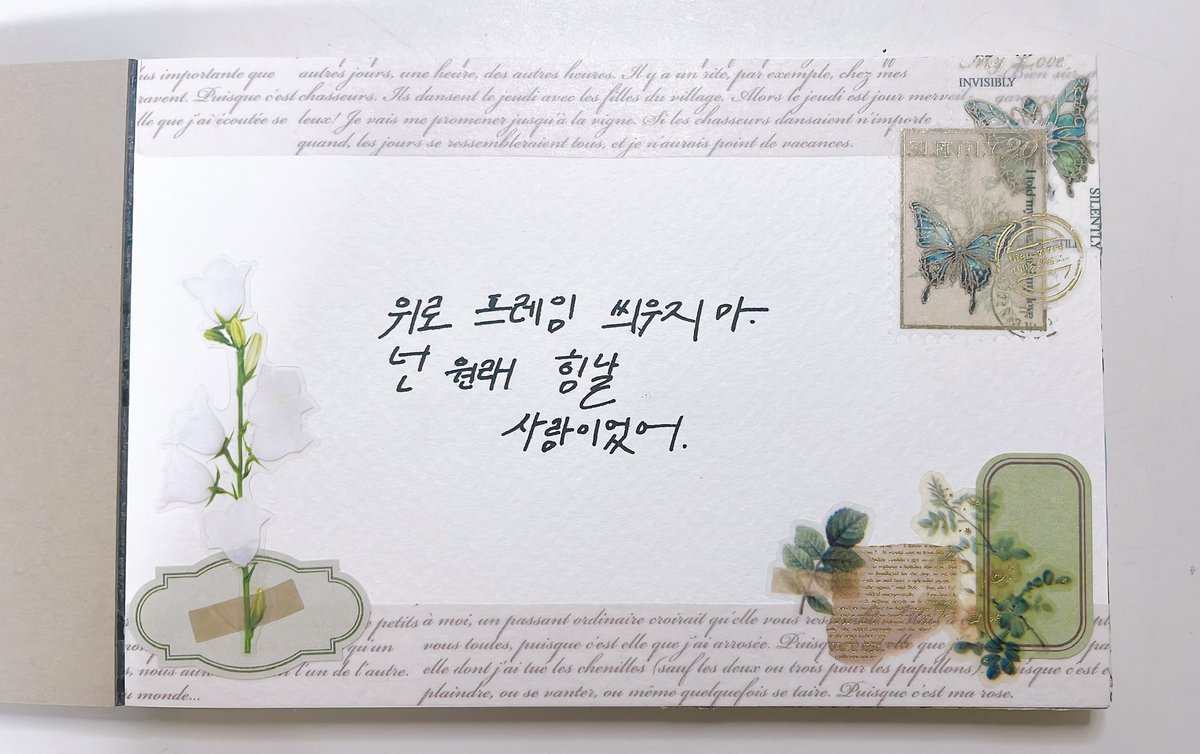 lus importante que autres jours, une heure, des autres heures. Il y a un rite, par exemple, chez mes
ravent. Puisque c'est chasseurs. Ils dansent le jeudi avec les filles du village. Alors le jeudi est jour merveil
lle que j'ai écoutée se leux! Je vais me promener jusqu'à la vigne. Si les chasseurs dansaient n'importe
quand, les jours se ressembleraient tous, et je n'aurais point de vacances.
My Love
INVISIBLY
SILENTLY
위로 프레임 씌우지 마.
넌 원래 힘날
사람이었어.
petits à moi, un passant ordinaire croirait qu'elle vous
qu'un vous toutes, puisque c'est elle que j'ai arrosée. Puisqu
l'un de l'autre. elle dont j'ai tué les chenilles (sauf les deux ou trois pour les papillons). Puisque c'est e
u monde... plaindre, ou se vanter, ou même quelquefois se taire. Puisque c'est ma rose.